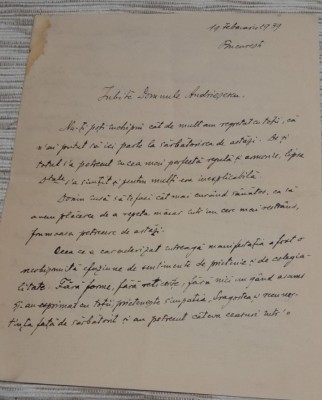 19 Februarie 1941
București
Iubite Domnule Andriescu,
Nu-ți poți închipui cât de mult am regretat cu toții, că
n'ai putut să iei parte la sărbătorirea de astăzi. De și
totul s'a petrecut cu cea mai perfectă regulă și armonie, lipsa
s'a simțit și pentru mulți era inexplicabilă.
Domn cură să te faci cât mai curând sănătos, ca să
avem plăcerea de a repeta măcar într'un cerc mai restrâns,
frumoasa petrecere de astăzi.
Ceea ce a caracterizat întreaga manifestație a fost o
nechipuită efuziune de sentimente de prietenie și de colegia-
litate. Fără forme, fără reticențe, fără nici un gând ascuns
și-au exprimat cu toții prietenește simpatia, dragostea,
față de sărbătorit și au petrecut câteva ceasuri într'o